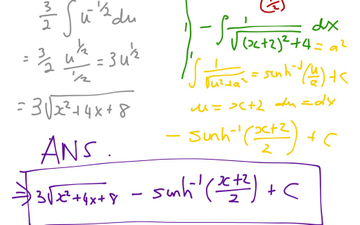 3/2 ∫ u^(-1/2) du
= 3/2 u^(1/2)/(1/2) = 3u^(1/2)
= 3√(x²+4x+8)
- ∫ 1/√((x+2)²+4) dx
= a²
∫ 1/√(u²+a²) = sinh⁻¹(u/a) + C
u = x+2 du = dx
- sinh⁻¹((x+2)/2) + C
ANS.
⇒ 3√(x²+4x+8) - sinh⁻¹((x+2)/2) + C